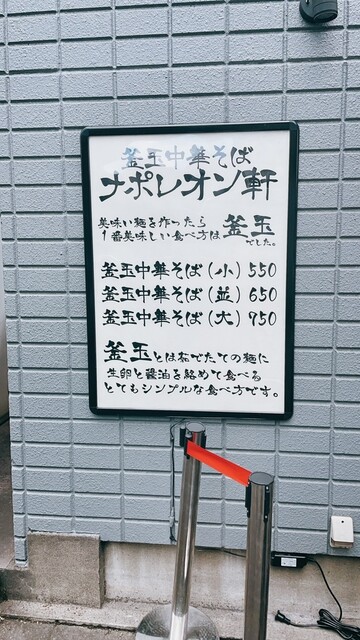 釜玉中華そば
ナポレオン軒
美味い麺を作ったら
1番美味しい食べ方は 釜玉でした。
釜玉中華そば(小) 550
釜玉中華そば(並) 650
釜玉中華そば(大) 750
釜玉とは茹でたての麺に
生卵と醤油を絡めて食べる
とてもシンプルな食べ方です。